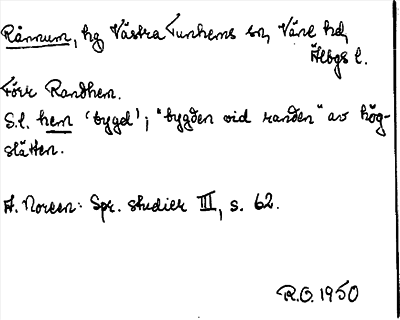 Rånnum, hg Västra Tunhems sn, Väne hd,
Älbgs l.
Förr Randhem.
S.l. hem 'bygd'; "bygden vid randen" av hög-
slätten.
A. Noreen: Spr. studier III, s. 62.
R.O. 1950